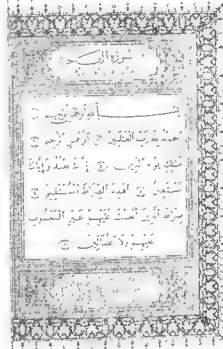 سورة
الله الرحمن الرحيم
الحمد لله رب العلمين الرحمن الرحيم
ملك يوم الدين إياك نعبد وإياك
نستعين اهدنا الصراط المستقيم
صراط الذين أنعمت عليهم غير المغضوب
عليهم ولا الضالين